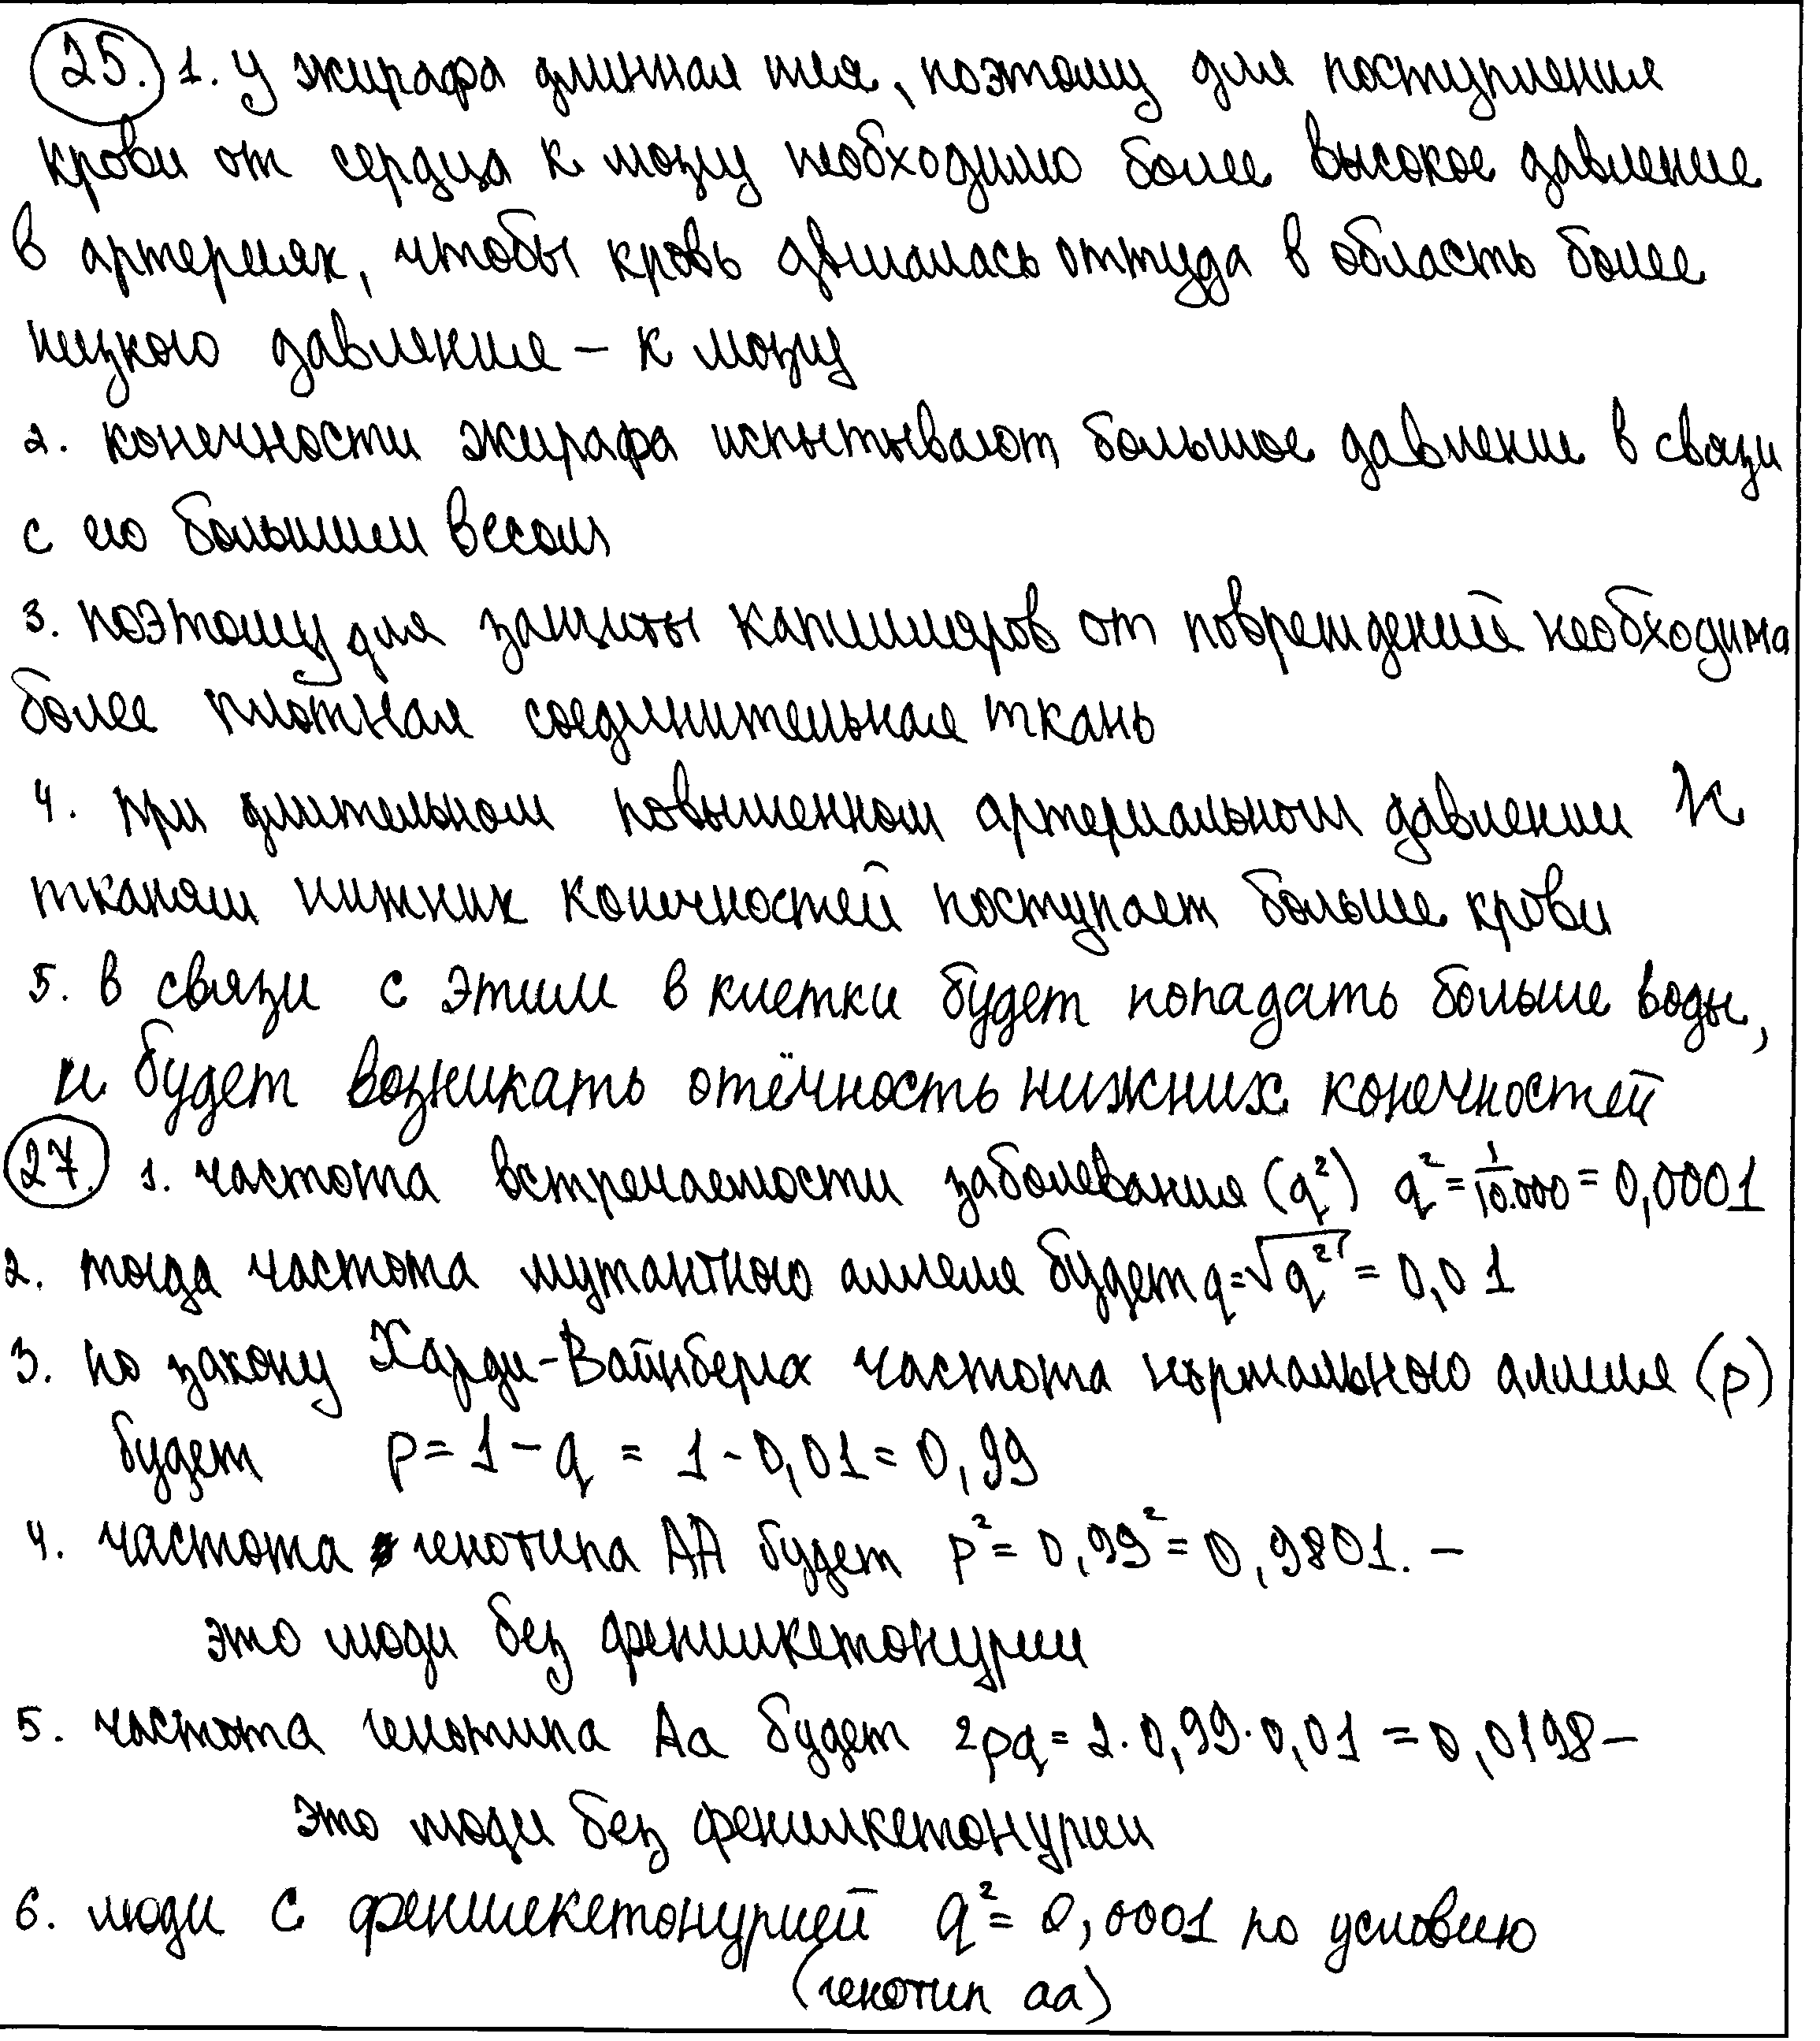 25. 1. У жирафа длинная шея, поэтому для поступления
крови от сердца к мозгу необходимо более высокое давление
в артериях, чтобы кровь двигалась оттуда в область более
низкого давления – к мозгу
2. конечности жирафа испытывают большое давление в связи
с его большим весом
3. поэтому для защиты капилляров от повреждений необходима
более плотная соединительная ткань
4. при длительном повышенном артериальном давлении к
тканям нижних конечностей поступает больше крови
5. в связи с этим в клетки будет попадать больше воды,
и будет возникать отёчность нижних конечностей
27. 1. частота встречаемости заболевания (q²) q² = 1/10.000 = 0,0001
2. тогда частота мутантного аллеля будет q = √q² = 0,01
3. по закону Харди-Вайнберга частота нормального аллеля (p)
будет p = 1 – q = 1 - 0,01 = 0,99
4. частота генотипа АА будет p² = 0,99² = 0,9801. –
это люди без фенилкетонурии
5. частота генотипа Аа будет 2pq = 2·0,99·0,01 = 0,0198 –
это люди без фенилкетонурии
6. люди с фенилкетонурией q² = 0,0001 по условию
(генотип аа)